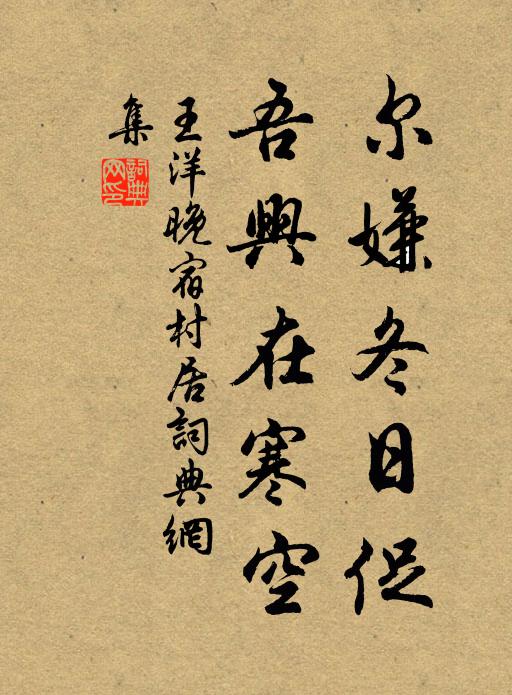 尔嫌冬日促
吾興在寒空
王洋晚宿村居詞典網
集
詞典
网印